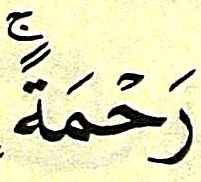 رَحْمَةًۚ